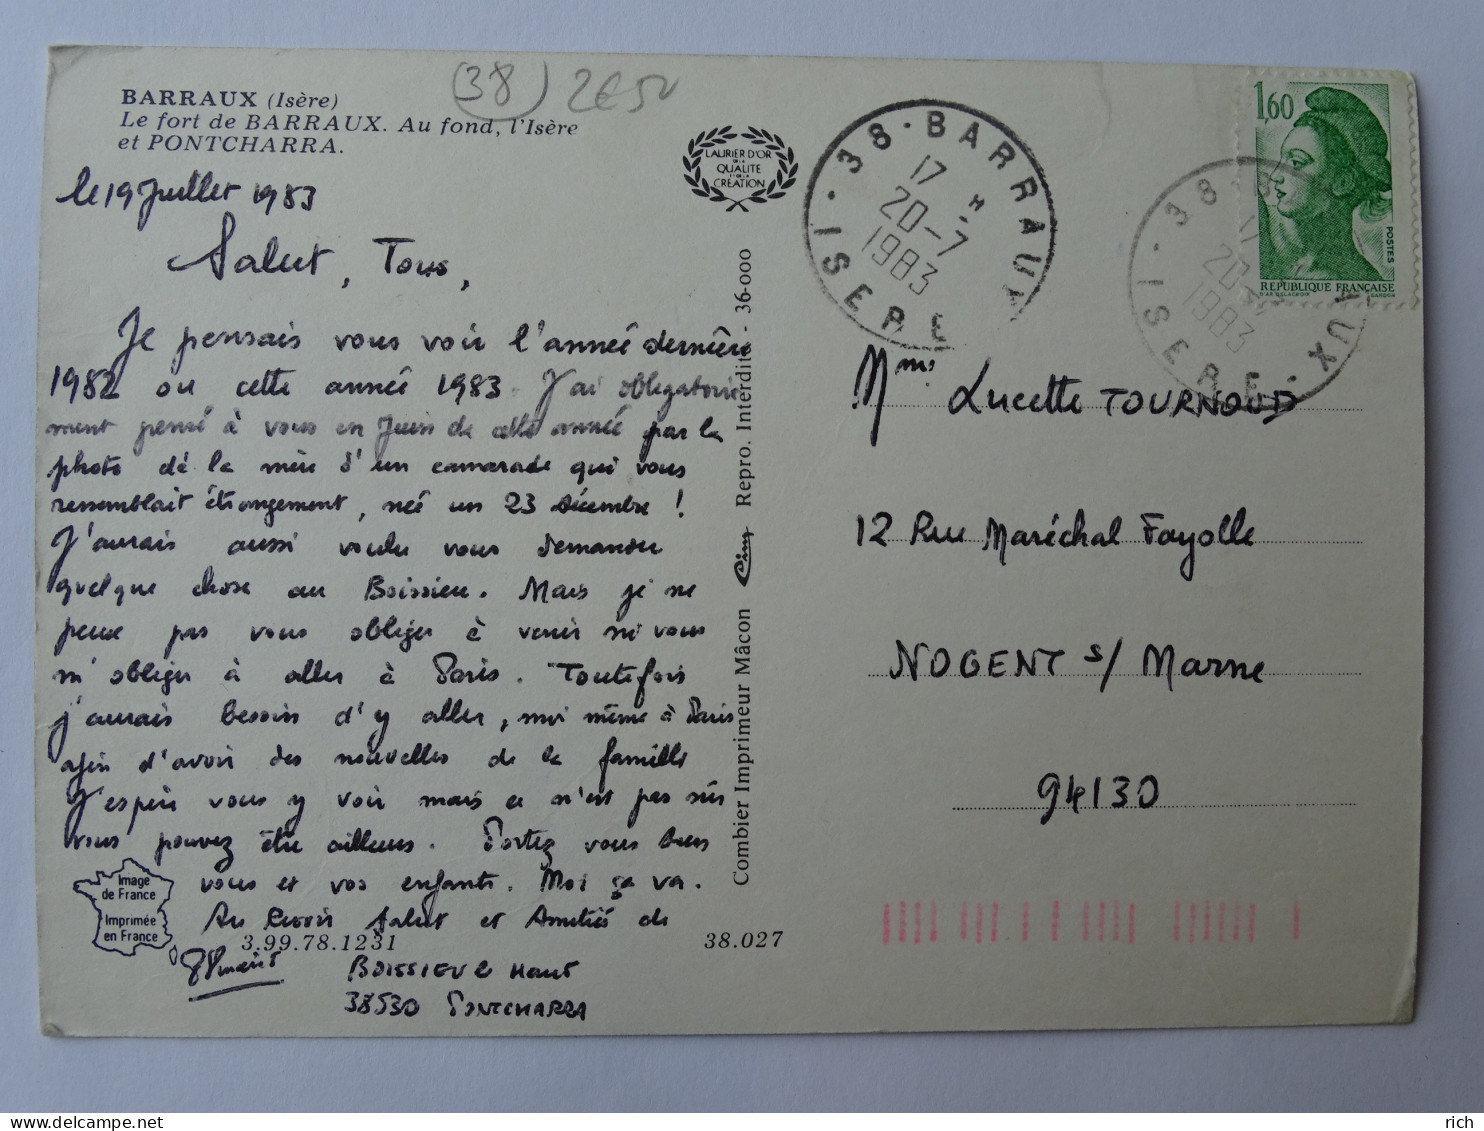 (38) 2€50
BARRAUX (Isère)
Le fort de BARRAUX. Au fond, l'Isère
et PONTCHARRA.
LAURIER D'OR
DE LA
QUALITE
ET DE LA
CREATION
le 19 Juillet 1983
Salut, Tous,
Je pensais vous voir l'année dernière
1982 ou cette année 1983. J'ai obligatoire
ment pensé à vous en Juin de cette année par la
photo de la mère d'un camarade qui vous
ressemblait étrangement, née un 23 décembre !
J'aurais aussi voulu vous demander
quelque chose au Boissieu. Mais je ne
peux pas vous obliger à venir ni vous
m'obliger à aller à Paris. Toutefois
j'aurais besoin d'y aller, moi même à Paris
afin d'avoir des nouvelles de la famille
J'espère vous y voir mais ce n'est pas sûr
vous pouvez être ailleurs. Portez vous bien
vous et vos enfants. Moi ça va.
Au Revoir Salut et Amitiés de
BOISSIEU le Haut
38530 PONTCHARRA
Image
de France
Imprimée
en France
3.99.78.1231
38.027
Combier Imprimeur Mâcon Cim Repro. Interdite - 36-000
38 - BARRAUX
17 H
20-7
1983
ISERE
38 - BARRAUX
17
20-7
1983
ISERE
1,60
POSTES
REPUBLIQUE FRANÇAISE
D'AP. DELACROIX GANDON
Mme Lucette TOURNOUD
12 Rue Maréchal Fayolle
NOGENT s/ Marne
94130
rich